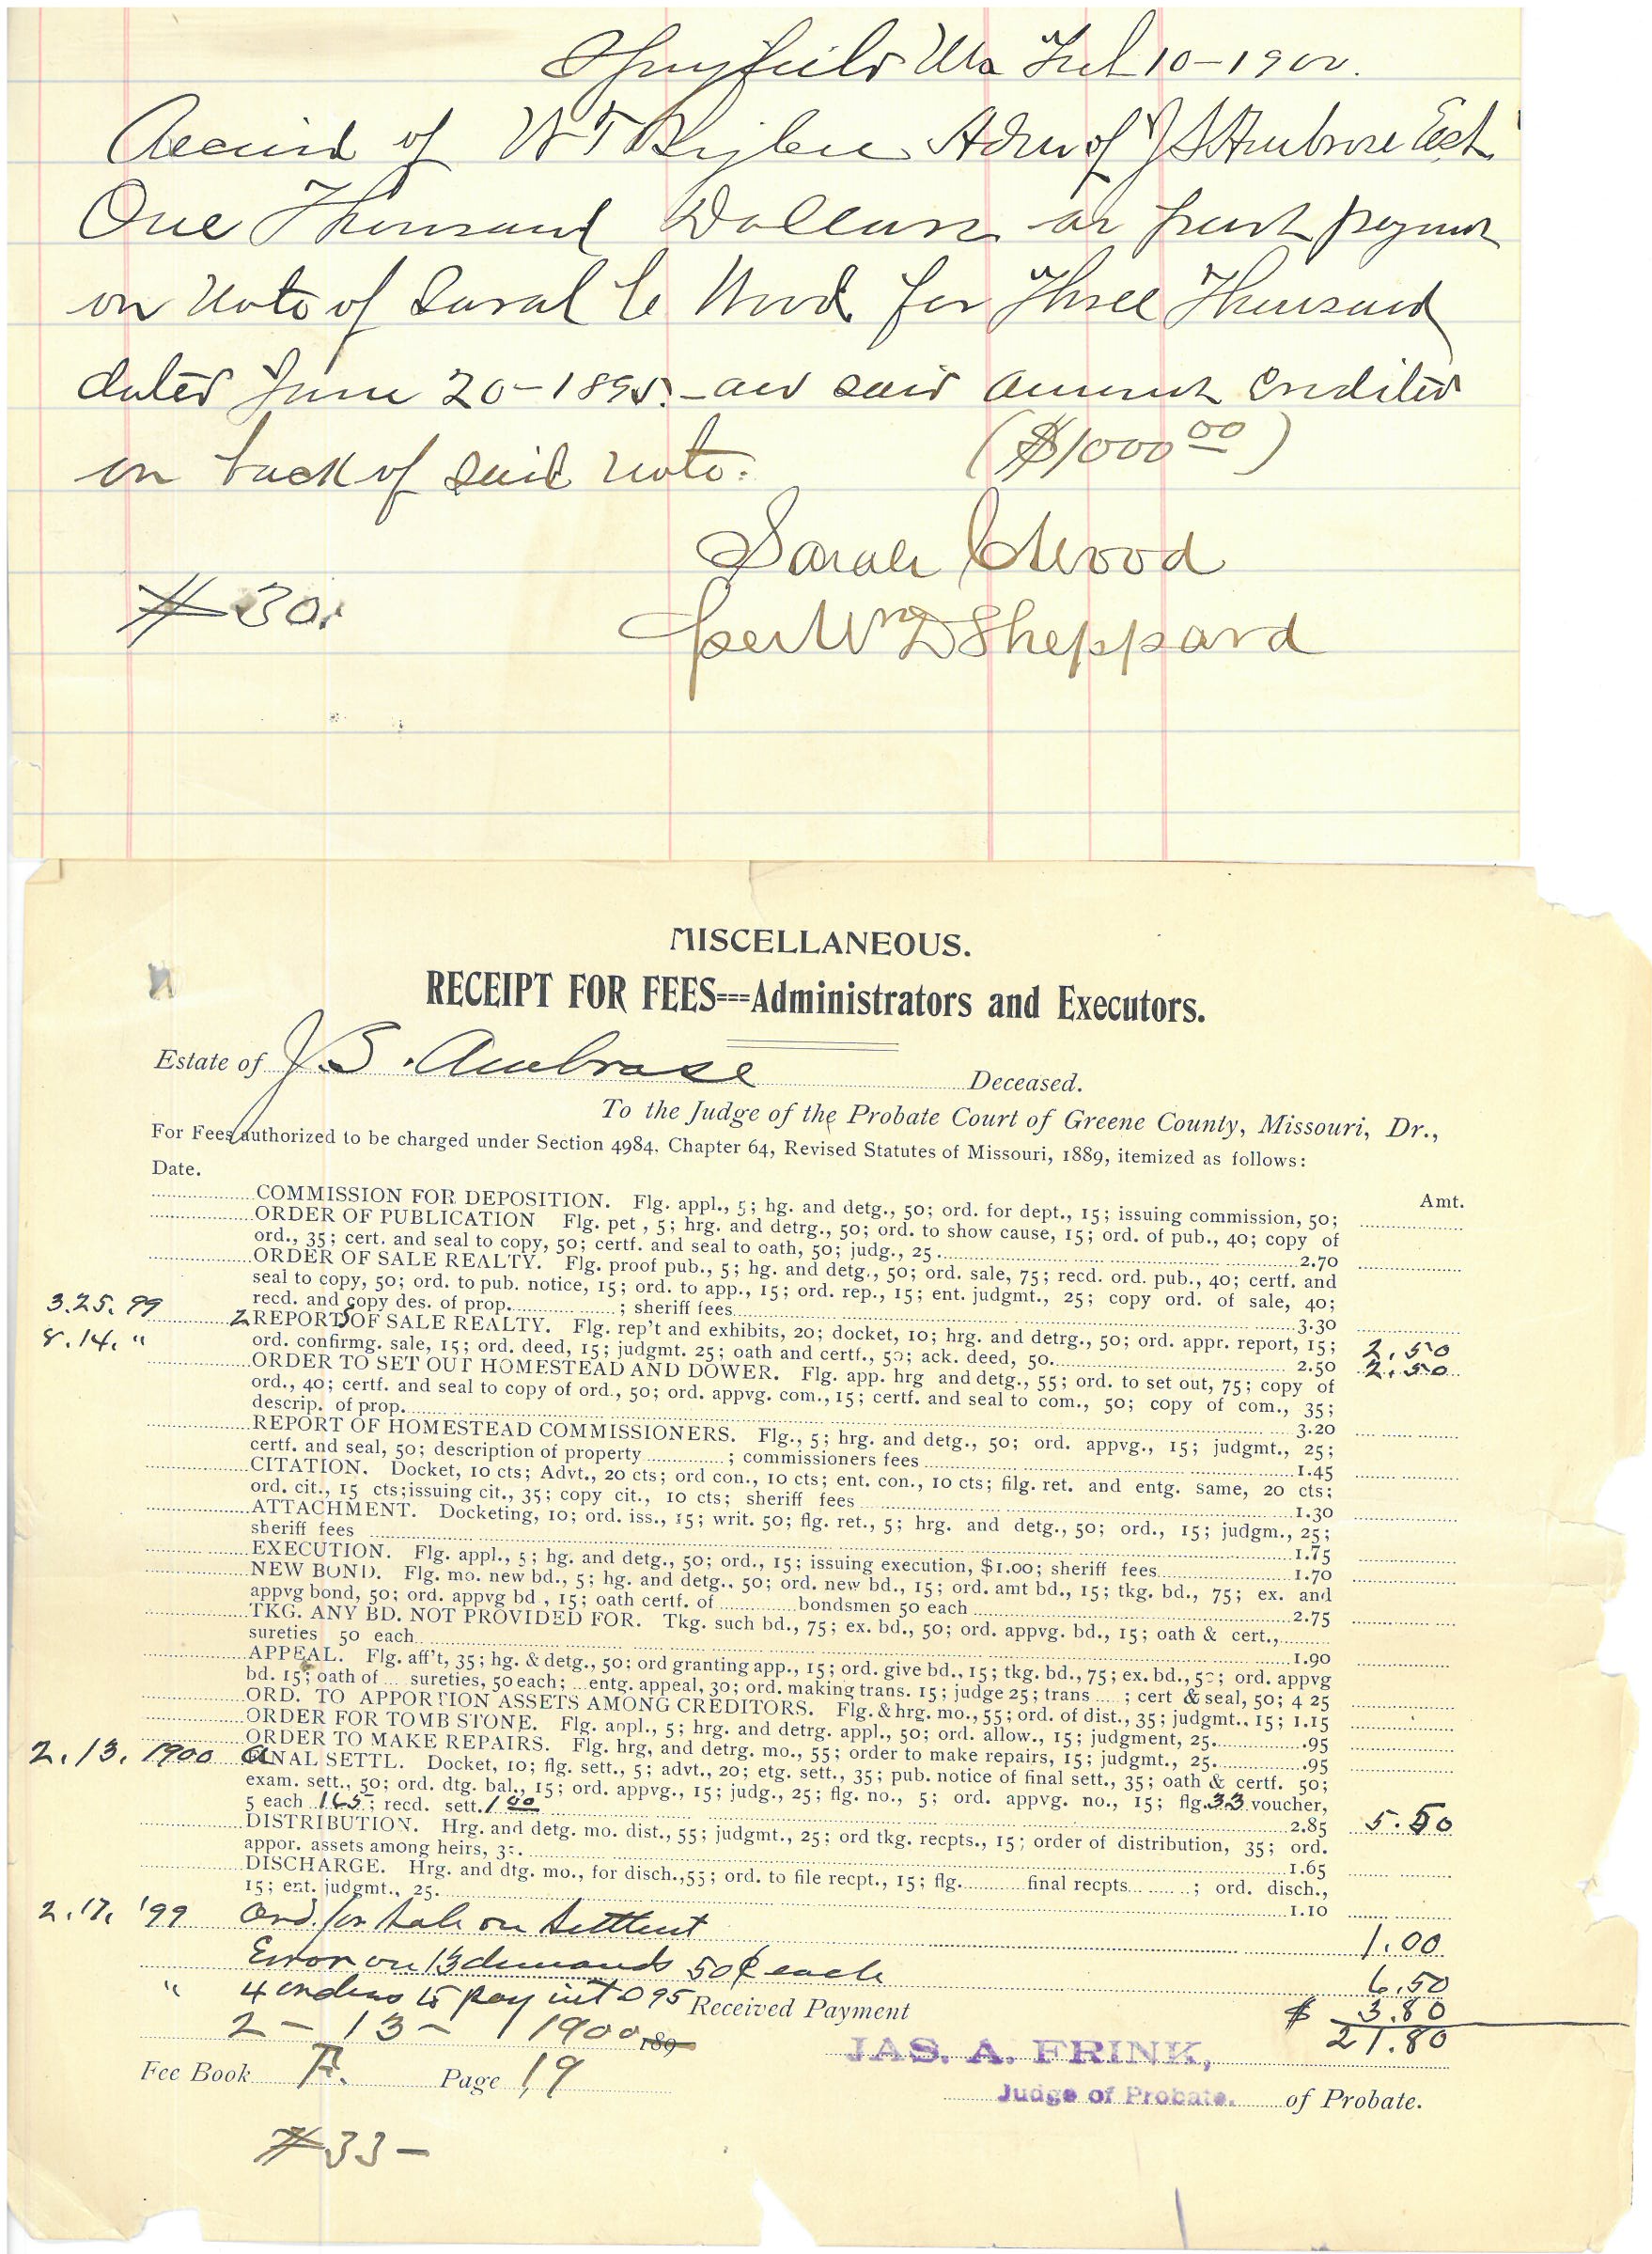 Springfield Mo Feb 10-1900.
Received of W T Admr of J S Ambrose Est
One Thousand Dollars as part payment
on Note of Sarah C Wood for Three Thousand
dated June 20-1895.- and said amount credited
on back of said note. ($1000 00)
Sarah C Wood
per Wm D Sheppard
# 30.
MISCELLANEOUS.
RECEIPT FOR FEES===Administrators and Executors.
Estate of J. S. Ambrose Deceased.
To the Judge of the Probate Court of Greene County, Missouri, Dr.,
For Fees authorized to be charged under Section 4984, Chapter 64, Revised Statutes of Missouri, 1889, itemized as follows:
Date. Amt.
COMMISSION FOR DEPOSITION. Flg. appl., 5; hg. and detg., 50; ord. for dept., 15; issuing commission, 50;
ORDER OF PUBLICATION Flg. pet , 5; hrg. and detrg., 50; ord. to show cause, 15; ord. of pub., 40; copy of
ord., 35; cert. and seal to copy, 50; certf. and seal to oath, 50; judg., 25 2.70
ORDER OF SALE REALTY. Flg. proof pub., 5; hg. and detg., 50; ord. sale, 75; recd. ord. pub., 40; certf. and
seal to copy, 50; ord. to pub. notice, 15; ord. to app., 15; ord. rep., 15; ent. judgmt., 25; copy ord. of sale, 40;
recd. and copy des. of prop. ; sheriff fees 3.30
3.25.99 2 REPORTS OF SALE REALTY. Flg. rep't and exhibits, 20; docket, 10; hrg. and detrg., 50; ord. appr. report, 15; 2.50
8.14. " ord. confirmg. sale, 15; ord. deed, 15; judgmt. 25; oath and certf., 50; ack. deed, 50. 2.50 2.50
ORDER TO SET OUT HOMESTEAD AND DOWER. Flg. app. hrg and detg., 55; ord. to set out, 75; copy of
ord., 40; certf. and seal to copy of ord., 50; ord. appvg. com., 15; certf. and seal to com., 50; copy of com., 35;
descrip. of prop. 3.20
REPORT OF HOMESTEAD COMMISSIONERS. Flg., 5; hrg. and detg., 50; ord. appvg., 15; judgmt., 25;
certf. and seal, 50; description of property ; commissioners fees 1.45
CITATION. Docket, 10 cts; Advt., 20 cts; ord con., 10 cts; ent. con., 10 cts; filg. ret. and entg. same, 20 cts;
ord. cit., 15 cts; issuing cit., 35; copy cit., 10 cts; sheriff fees 1.30
ATTACHMENT. Docketing, 10; ord. iss., 15; writ. 50; flg. ret., 5; hrg. and detg., 50; ord., 15; judgm., 25;
sheriff fees 1.75
EXECUTION. Flg. appl., 5; hg. and detg., 50; ord., 15; issuing execution, $1.00; sheriff fees 1.70
NEW BOND. Flg. mo. new bd., 5; hg. and detg., 50; ord. new bd., 15; ord. amt bd., 15; tkg. bd., 75; ex. and
appvg bond, 50; ord. appvg bd , 15; oath certf. of bondsmen 50 each 2.75
TKG. ANY BD. NOT PROVIDED FOR. Tkg. such bd., 75; ex. bd., 50; ord. appvg. bd., 15; oath & cert.,
sureties 50 each 1.90
APPEAL. Flg. aff't, 35; hg. & detg., 50; ord granting app., 15; ord. give bd., 15; tkg. bd., 75; ex. bd., 50; ord. appvg
bd. 15; oath of ... sureties, 50 each; ... entg. appeal, 30; ord. making trans. 15; judge 25; trans ; cert & seal, 50; 4 25
ORD. TO APPORTION ASSETS AMONG CREDITORS. Flg. & hrg. mo., 55; ord. of dist., 35; judgmt., 15; 1.15
ORDER FOR TOMB STONE. Flg. appl., 5; hrg. and detrg. appl., 50; ord. allow., 15; judgment, 25. .95
ORDER TO MAKE REPAIRS. Flg. hrg, and detrg. mo., 55; order to make repairs, 15; judgmt., 25. .95
2.13. 1900 NAL SETTL. Docket, 10; flg. sett., 5; advt., 20; etg. sett., 35; pub. notice of final sett., 35; oath & certf. 50;
exam. sett., 50; ord. dtg. bal., 15; ord. appvg., 15; judg., 25; flg. no., 5; ord. appvg. no., 15; flg. 33 voucher,
5 each 165; recd. sett. 1 00 2.85 5.50
DISTRIBUTION. Hrg. and detg. mo. dist., 55; judgmt., 25; ord tkg. recpts., 15; order of distribution, 35; ord.
appor. assets among heirs, 35. 1.65
DISCHARGE. Hrg. and dtg. mo., for disch., 55; ord. to file recpt., 15; flg. final recpts ; ord. disch.,
15; ent. judgmt., 25. 1.10
2.17. '99 Ord. for sale on settlmt 1.00
Error on 13 demands 50¢ each 6.50
" 4 orders to pay int @ 95 Received Payment $ 3.80
2 - 13 - 1900 189 21.80
JAS. A. FRINK,
Fee Book F. Page 19 Judge of Probate. of Probate.
# 33-